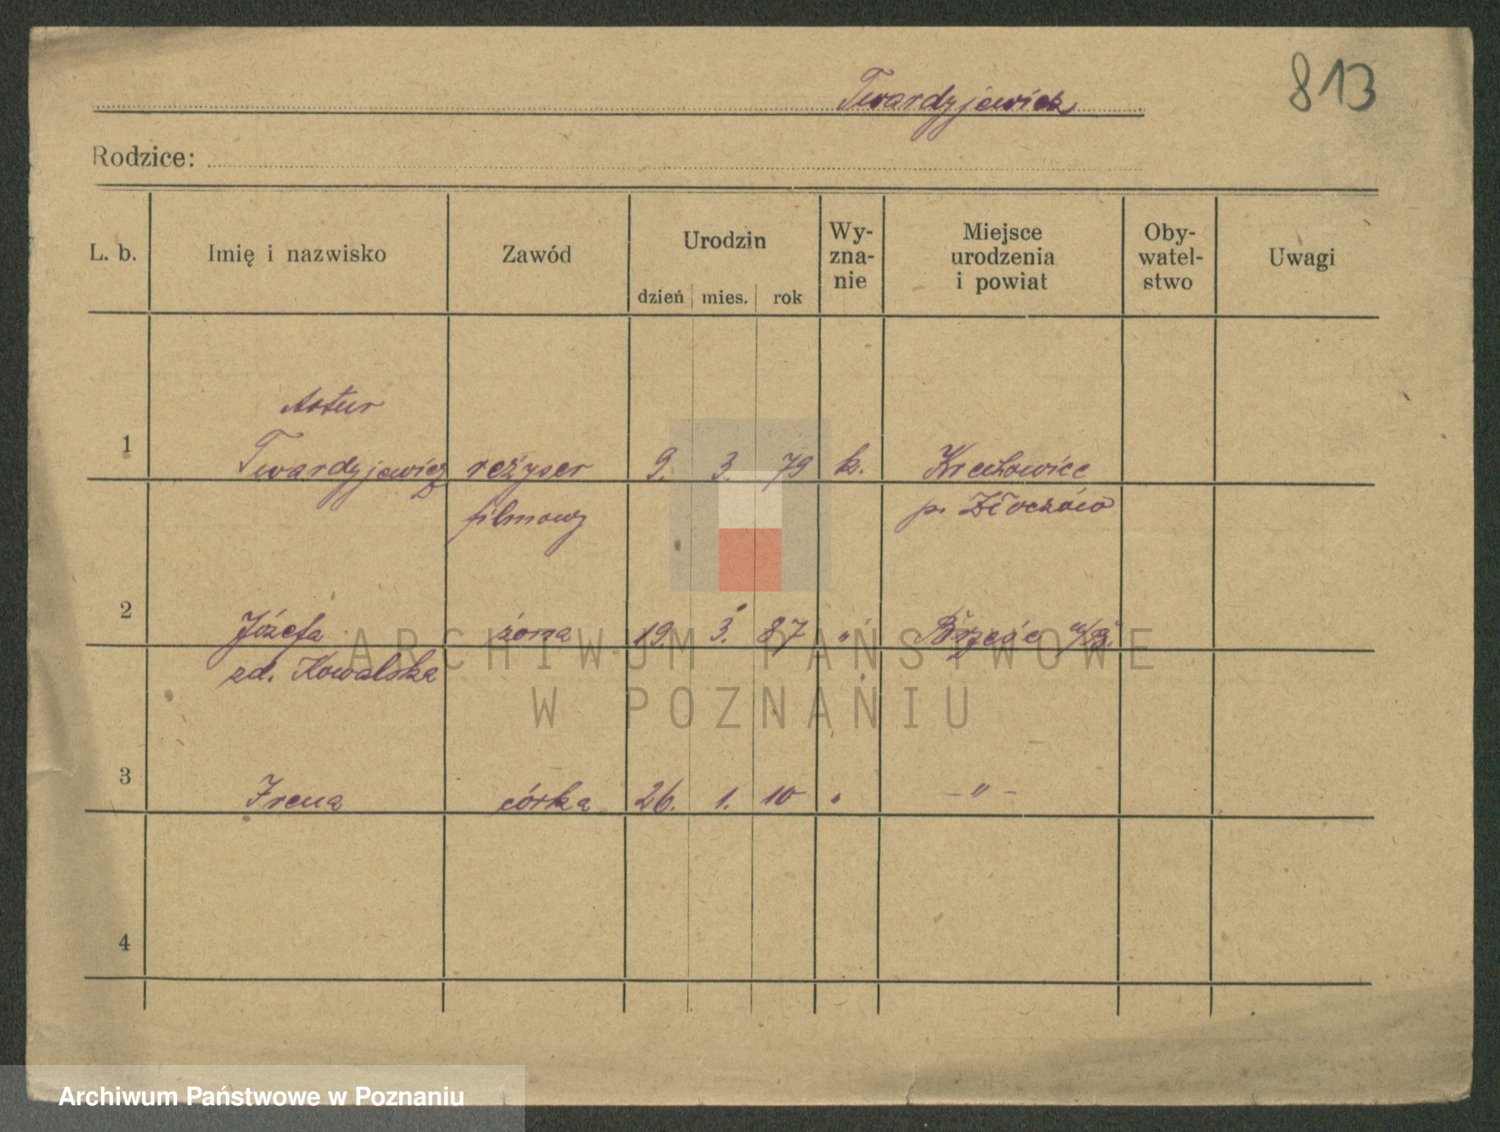 813
Twardyjewicz
Rodzice:
L. b. Imię i nazwisko Zawód Urodzin Wy-zna-nie Miejsce urodzenia i powiat Oby-watel-stwo Uwagi
dzień mies. rok
Artur
1 Twardyjewicz reżyser 9. 3. 79 k. Krechowice
filmowy p. Złoczów
2 Józefa żona 19. 3. 87 " Brześć n/B.
zd. Kowalska
3 Irena córka 26. 1. 10 " – " –
4
ARCHIWUM PAŃSTWOWE
W POZNANIU
Archiwum Państwowe w Poznaniu